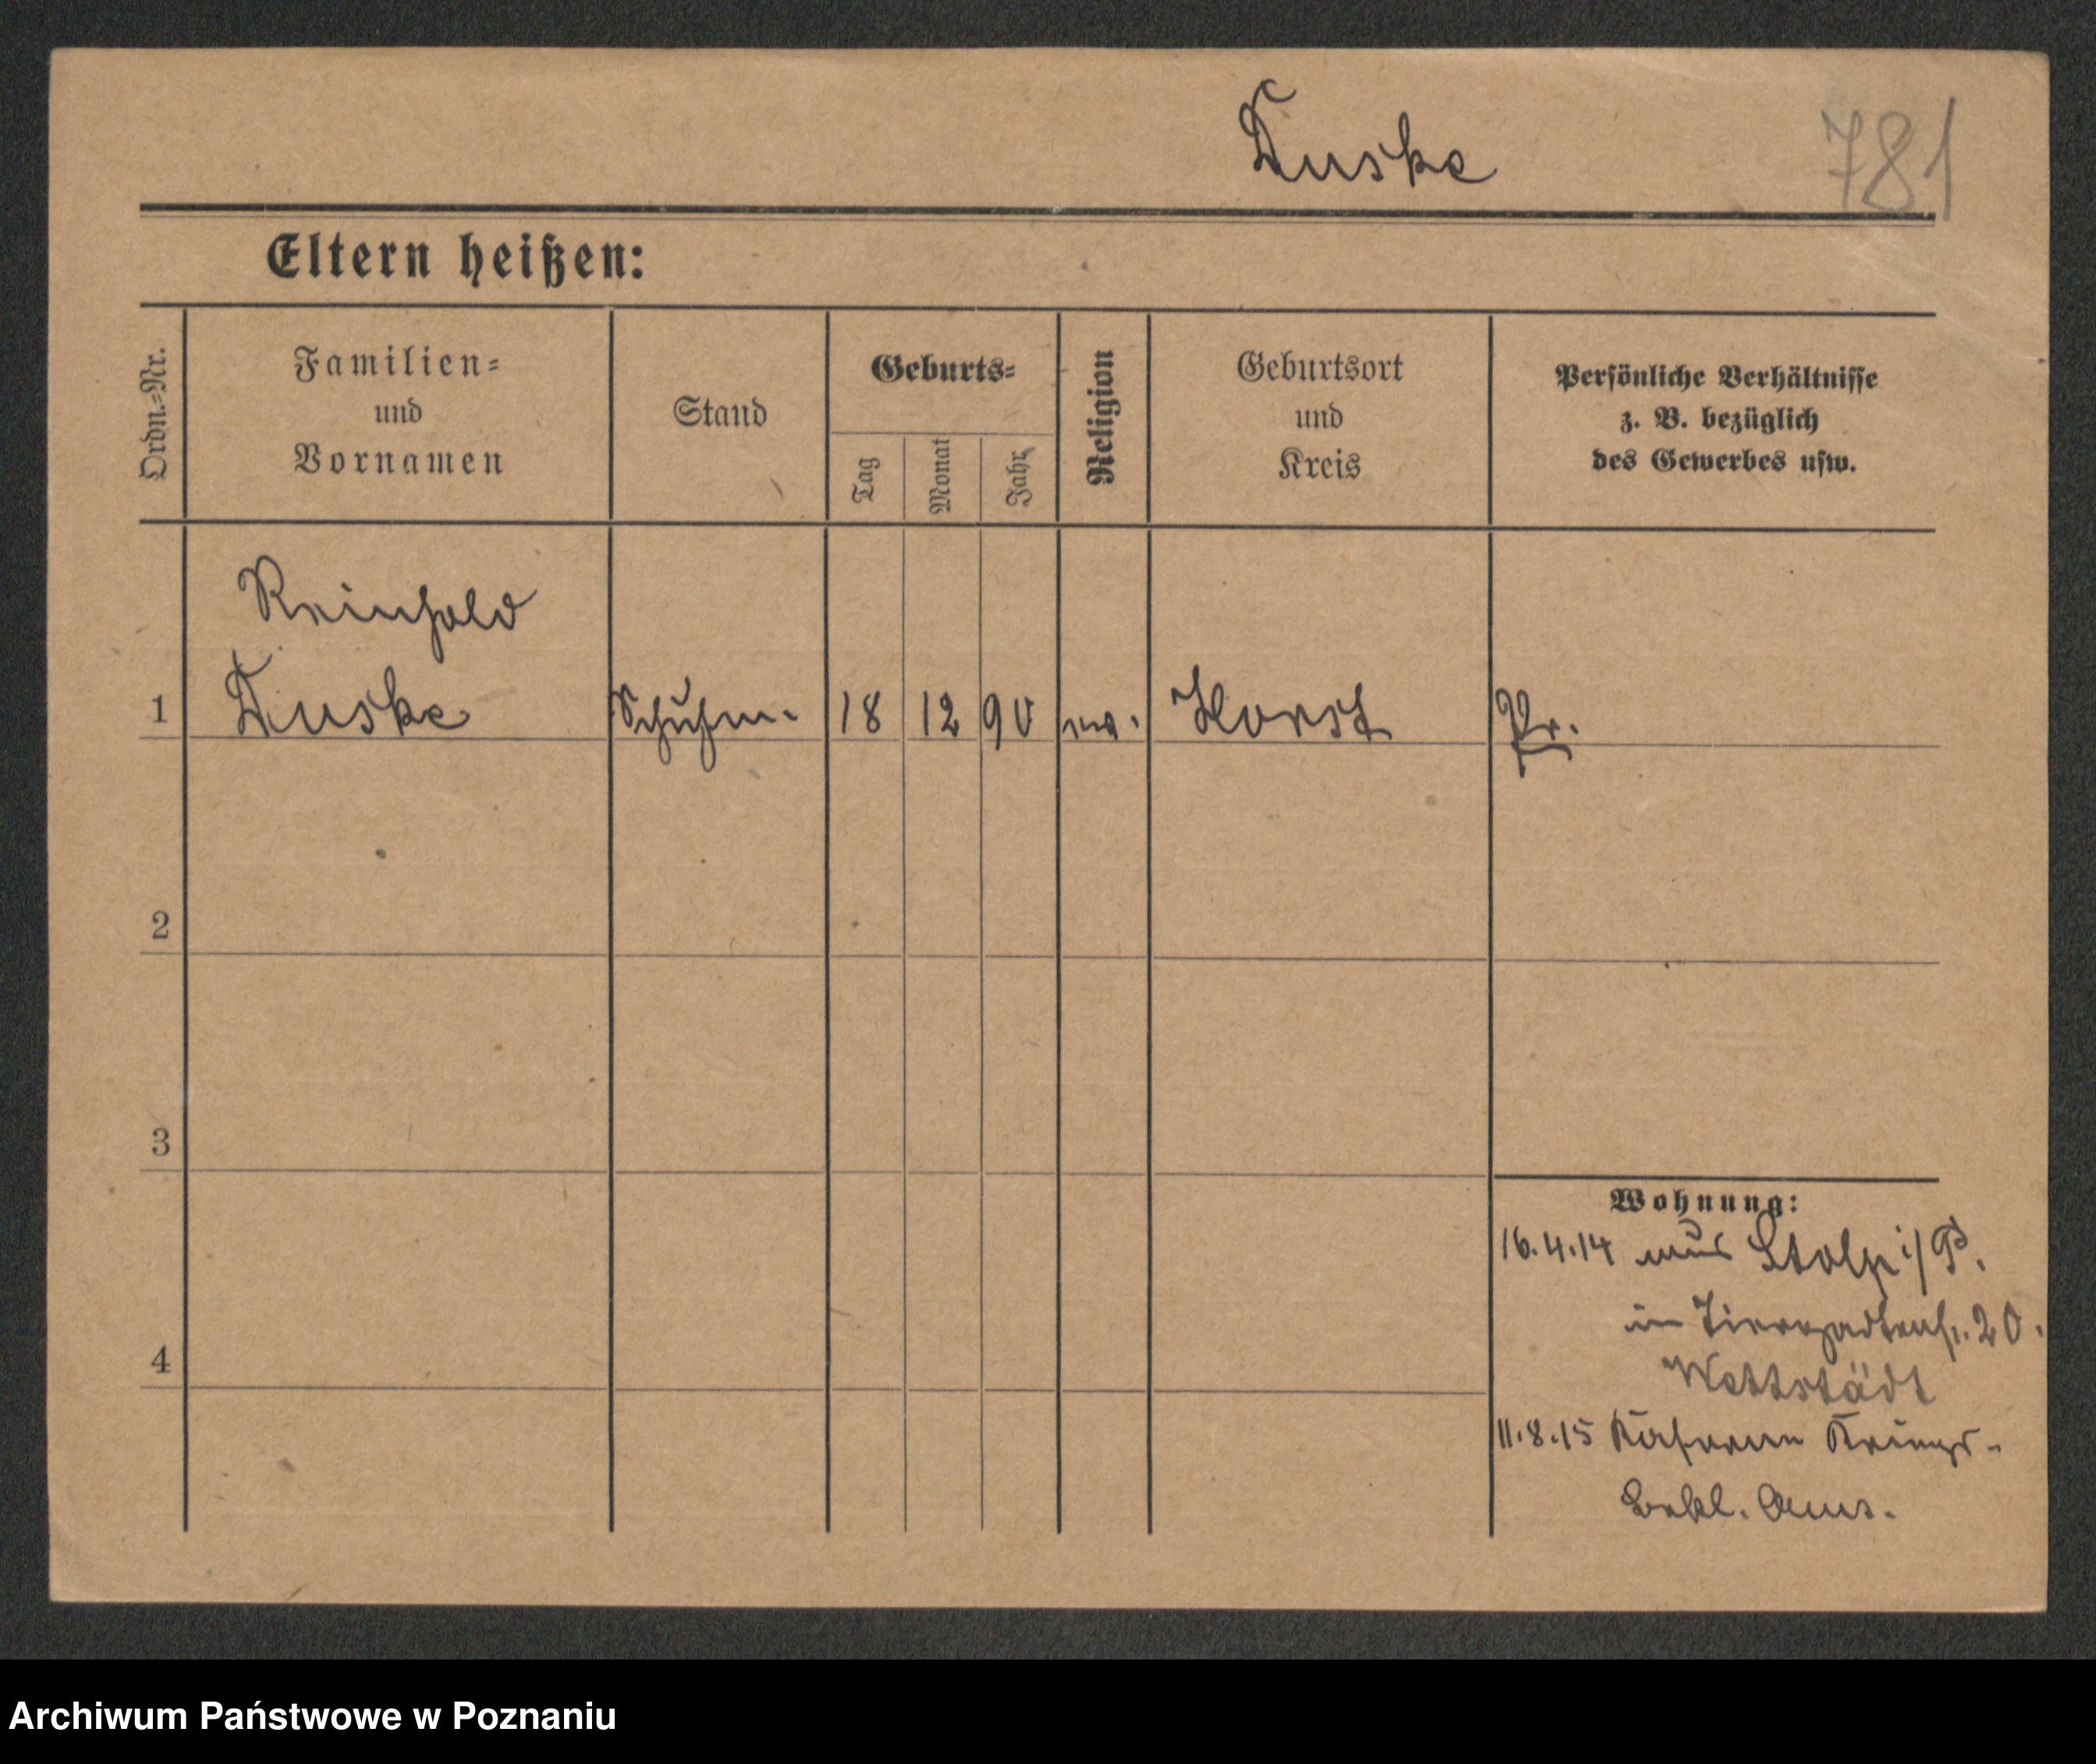 Duske
781
Eltern heißen:
Ordn.-Nr.
Familien-
und
Vornamen
Stand
Geburts-
Tag
Monat
Jahr
Religion
Geburtsort
und
Kreis
Persönliche Verhältnisse
z. B. bezüglich
des Gewerbes usw.
Reinhold
1 Duske Schuhm. 18 12 90 ev. Horst Pr.
2
3
4
Wohnung:
16.4.14 aus Stolp i/P.
in Tiergartenstr. 20.
Wettstädt
11.8.15 Kaserne Kriegs-
Bekl. Amt.
Archiwum Państwowe w Poznaniu